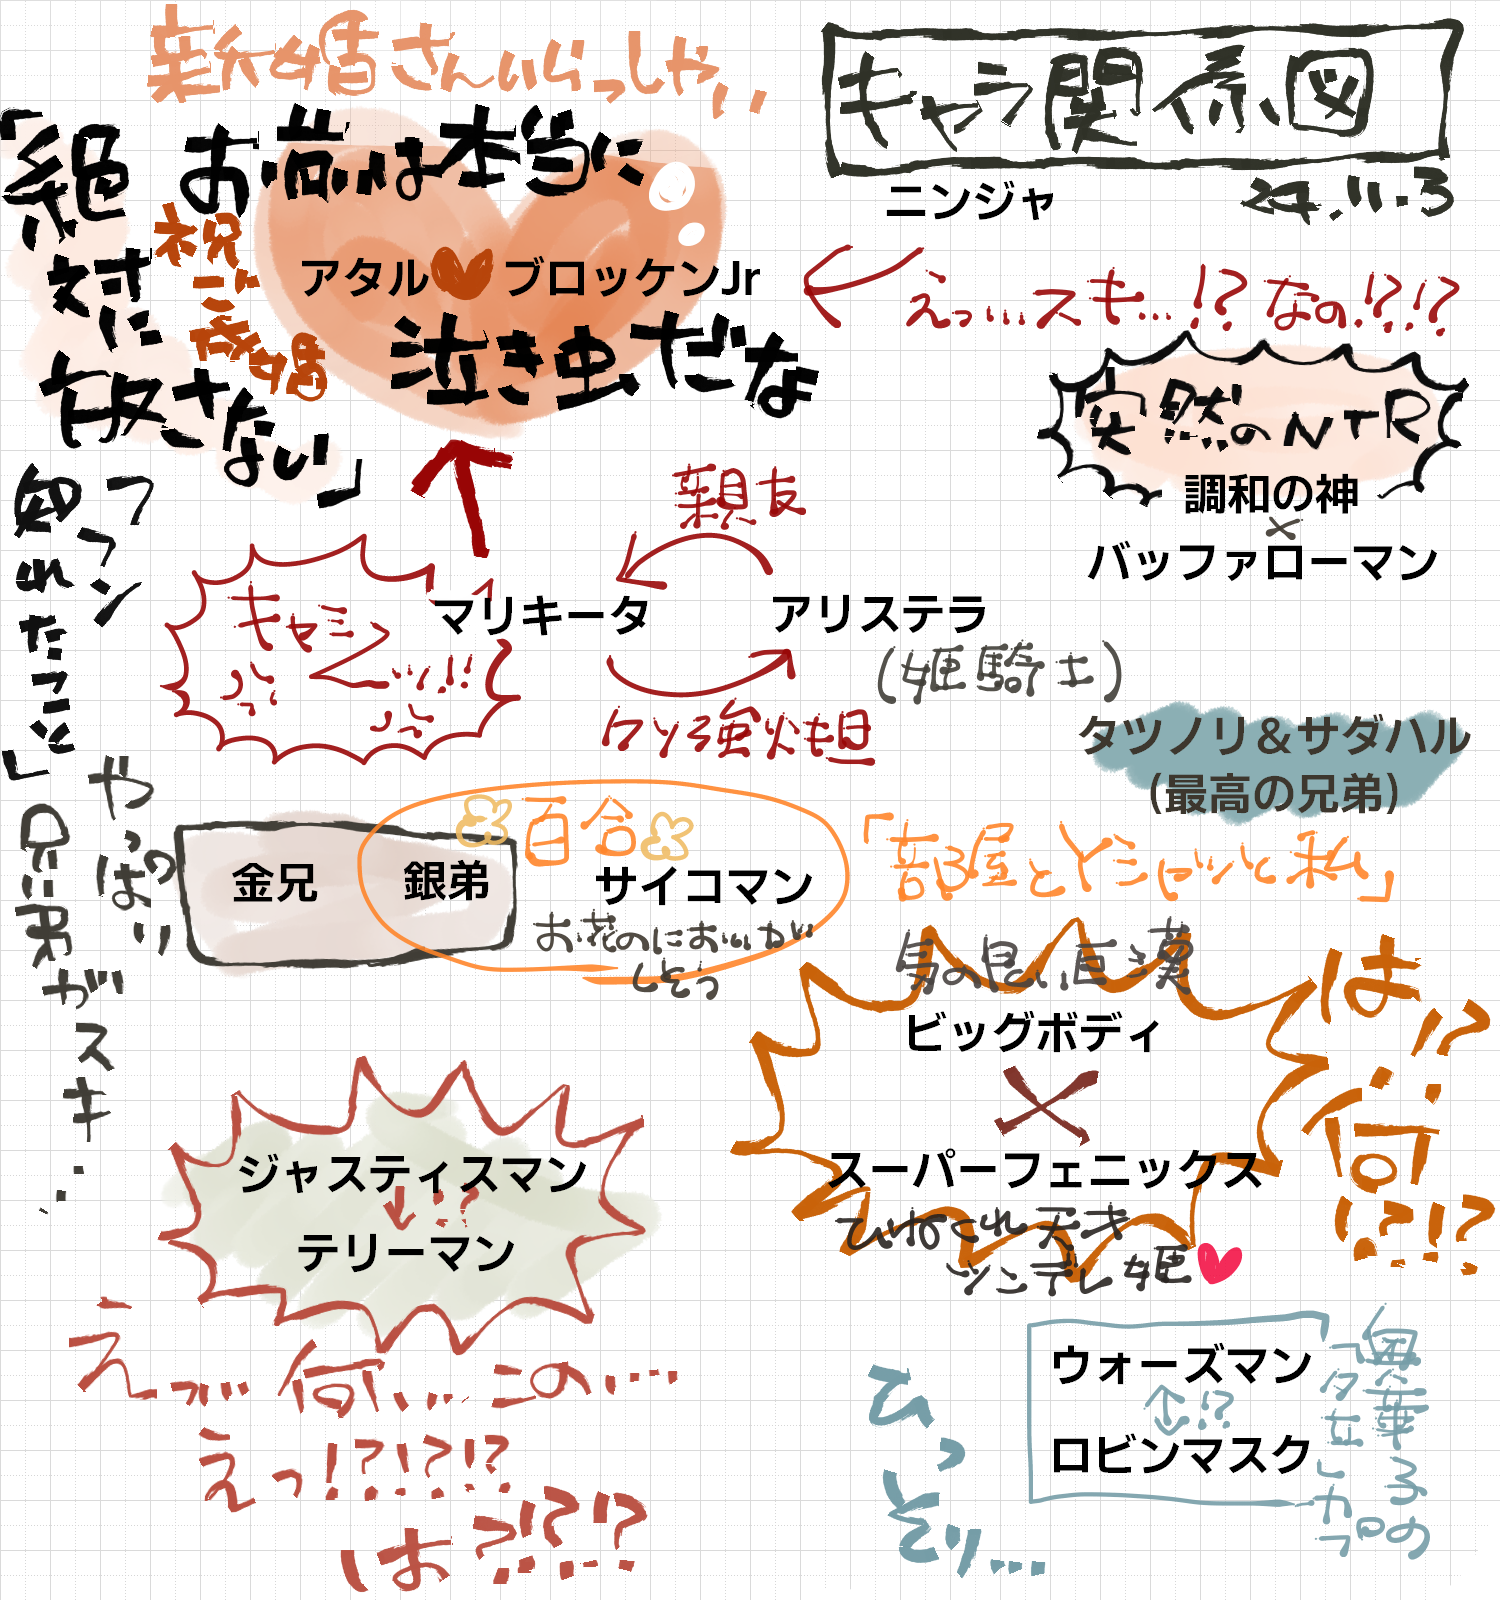 新婚さんいらっしゃい
キャラ関係図
24.11.3
ニンジャ
「絶対に放さない」
お前は本当に
祝ご成婚
アタル♥ブロッケンJr
泣き虫だな
えっ…スキ…!?なの!?!?
突然のNTR
調和の神
×
バッファローマン
「フフン
知れたこと」
キャミソ
ーッ!!
親友
マリキータ
アリステラ
(姫騎士)
クソ強火担
タツノリ&サダハル
(最高の兄弟)
やっぱり
兄弟がスキ…
金兄
銀弟
百合
サイコマン
お花のにおいが
しそう
「部屋とYシャツと私」
男の良い巨漢
ビッグボディ
×
スーパーフェニックス
ひねくれ天才
ツンデレ姫♥
は!?
何!?!?
ジャスティスマン
↓!?
テリーマン
えっ…何…この…
えっ!?!?!?
は?!?!?
ひっそり…
ウォーズマン
↕!?
ロビンマスク